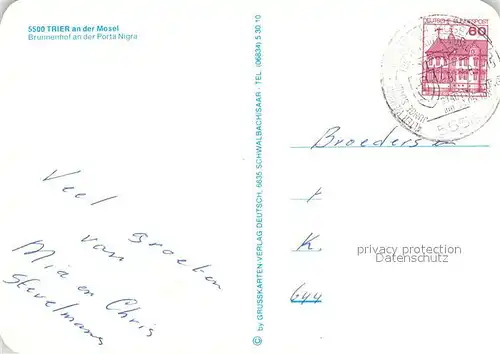 5500 TRIER an der Mosel
Brunnenhof an der Porta Nigra
Veel Groeten
van
Mia en Chris
Stevelmans
© by GRUSSKARTEN-VERLAG DEUTSCH, 6635 SCHWALBACH/SAAR · TEL. (06834) 5 30 10
DEUTSCHE BUNDESPOST
60
Broeders
K.
privacy protection
DELCAMPE.COM